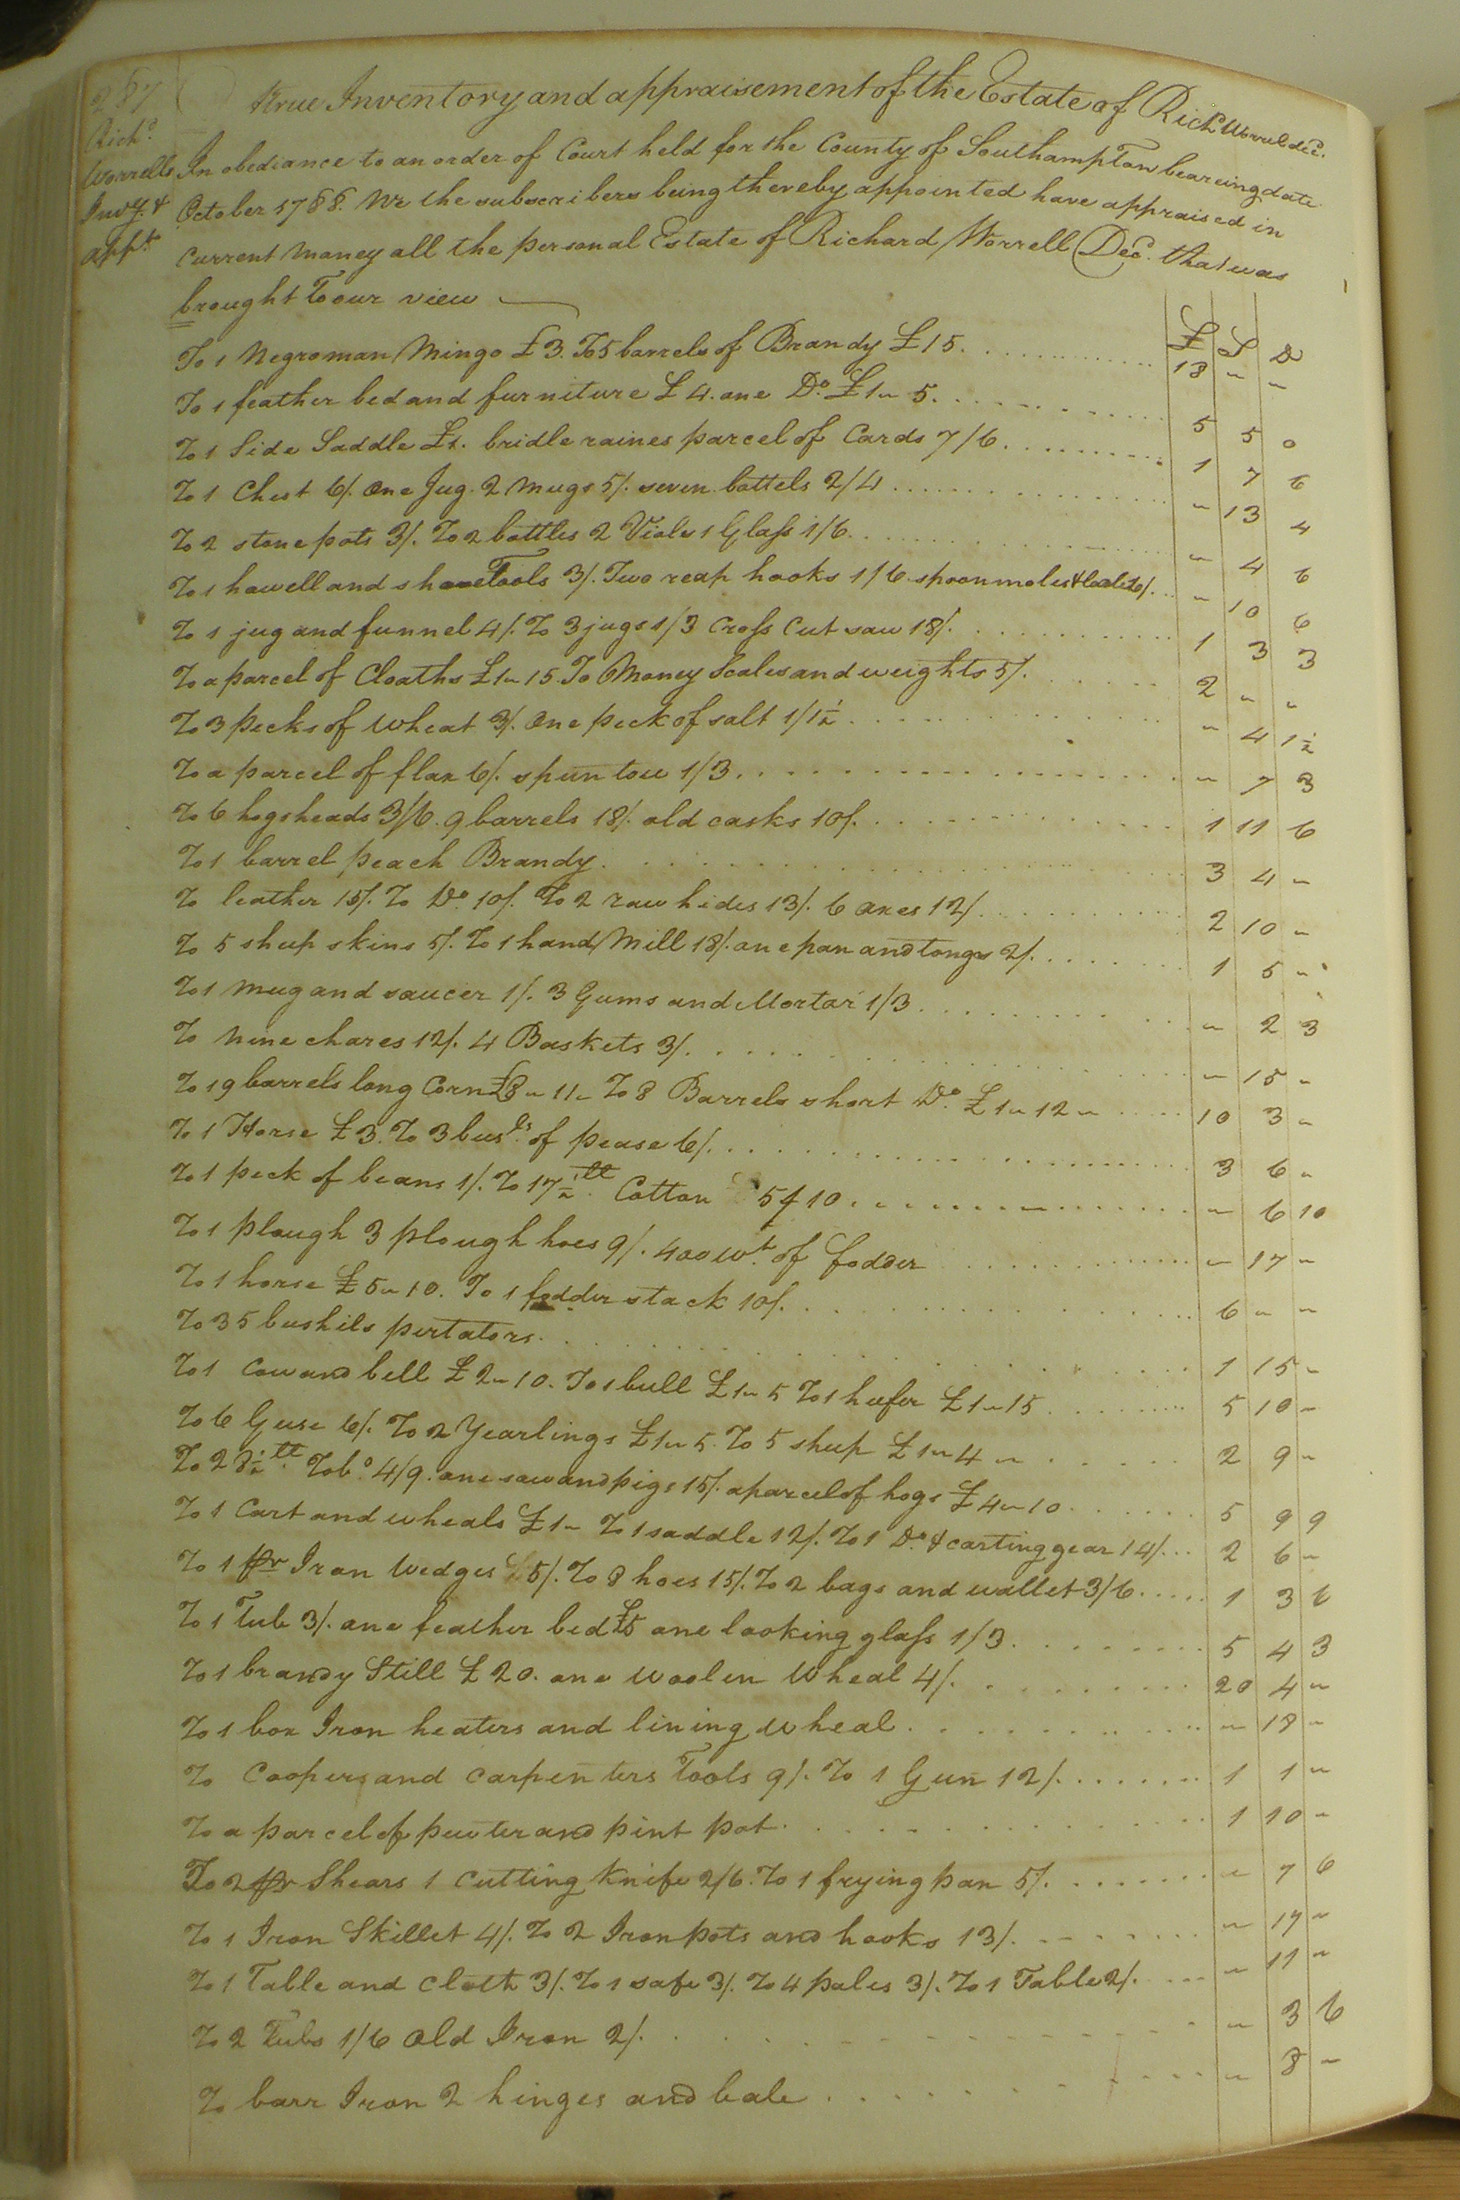 287
A true Inventory and appraisement of the Estate of Richd. Worrel decd.
Richd.
Worrells
Invy. &
appt.
In obediance to an order of Court held for the County of Southampton beareing date
October 1788. We the subscribers being thereby appointed have appraised in
Current Money all the personal Estate of Richard Worrell Decd. that was
brought to our view
£ S D
To 1 Negroman Mingo £3. To 5 barrels of Brandy £15. 18 " "
To 1 feather bed and furniture £4. one Do. £1 " 5. 5 5 0
To 1 Side Saddle £1. bridle raines parcel of Cards 7/6. 1 7 6
To 1 Chest 6/. One Jug. 2 Mugs 5/. seven bottels 2/4 " 13 4
To 2 stone pots 3/. To 2 bottles 2 Viols 1 Glass 1/6. " 4 6
To 1 howell and shoe Tools 3/. Two reap hooks 1/6. spoon moles & 6/. " 10 6
To 1 jug and funnel 4/. To 3 jugs 1/3 Cross Cut saw 18/. 1 3 3
To a parcel of Cloaths £1 " 15. To Money Scales and weights 5/. 2 " "
To 3 pecks of wheat 3/. One peck of salt 1/1½. " 4 1½
To a parcel of flax 6/. spun tow 1/3. " 7 3
To 6 hogsheads 3/6. 9 barrels 18/. old casks 10/. 1 11 6
To 1 barrel peach Brandy. 3 4 "
To leather 15/. To Do. 10/. To 2 raw hides 13/. 6 axes 12/. 2 10 "
To 5 sheep skins 5/. To 1 hand Mill 18/. one pan and tongs 2/. 1 5 "
To 1 Mug and saucer 1/. 3 Gums and Mortar 1/3 " 2 3
To Nine chares 12/. 4 Baskets 3/. " 15 "
To 19 barrels long Corn £8 " 11 " To 8 Barrels short Do. £1 " 12 " 10 3 "
To 1 Horse £3. To 3 busls. of pease 6/. 3 6 "
To 1 peck of beans 1/. To 17½ lt. Cotton 5/10. " 6 10
To 1 plough 3 plough hoes 9/. 400 wt. of fodder " 17 "
To 1 horse £5 " 10. To 1 fodder stack 10/. 6 " "
To 35 bushils pertators. 1 15 "
To 1 cow and bell £2 " 10. To 1 bull £1 " 5 To 1 heefer £1 " 15 5 10 "
To 6 Geese 6/. To 2 Yearlings £1 " 5. To 5 sheep £1 " 4 " 2 9 "
To 28½ lt. Tobo. 4/9. one sow and pigs 15/. a parcel of hogs £4 " 10 5 9 9
To 1 Cart and wheals £1 " To 1 saddle 12/. To 1 Do. & carting gear 14/. 2 6 "
To 1 pr Iron Wedges 5/. To 8 hoes 15/. To 2 bags and wallet 3/6. 1 3 6
To 1 Tub 3/. one feather bed £5 one looking glass 1/3. 5 4 3
To 1 brandy Still £20. one woolen Wheal 4/. 20 4 "
To 1 box Iron heaters and lining wheal. " 18 "
To Coopers and Carpenters Tools 9/. To 1 Gun 12/. 1 1 "
To a parcel of pewter and pint pot. 1 10 "
To 2 pr Shears 1 Cutting Knife 2/6. To 1 frying pan 5/. " 7 6
To 1 Iron Skillet 4/. To 2 Iron pots and hooks 13/. " 17 "
To 1 Table and Cloth 3/. To 1 safe 3/. To 4 pales 3/. To 1 Table 2/. " 11 "
To 2 Tubs 1/6 Old Iron 2/. " 3 6
To barr Iron 2 hinges and bale. " 8 "